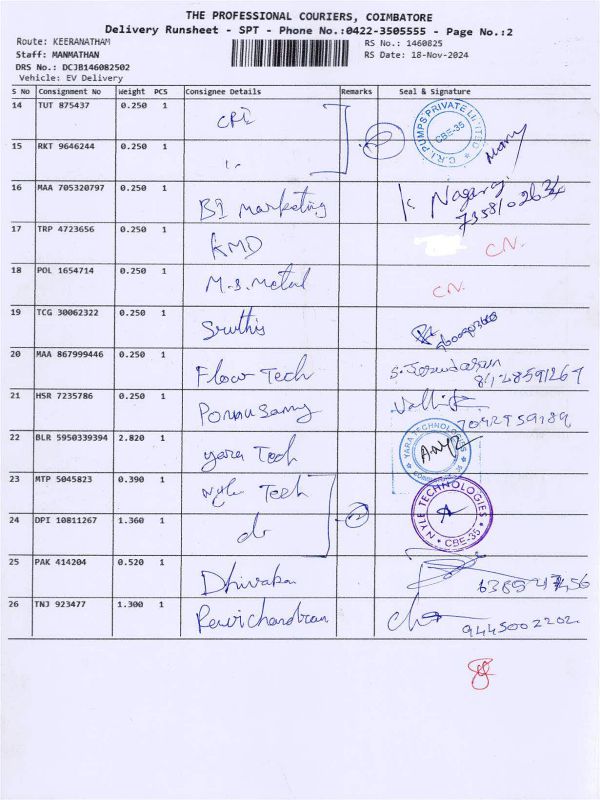 THE PROFESSIONAL COURIERS, COIMBATORE
Delivery Runsheet - SPT - Phone No.:0422-3505555 - Page No.:2
Route: KEERANATHAM RS No.: 1460825
Staff: MANMATHAN RS Date: 18-Nov-2024
DRS No.: DCJB146082502
Vehicle: EV Delivery
S No Consignment No Weight PCS Consignee Details Remarks Seal & Signature
14 TUT 875437 0.250 1 CRI 2 C.R.I. PUMPS PRIVATE LIMITED CBE-35
15 RKT 9646244 0.250 1
16 MAA 705320797 0.250 1 BI Marketing K Nagaraj
17 TRP 4723656 0.250 1 KMD C.N.
18 POL 1654714 0.250 1 M.S. Metal C.N.
19 TCG 30062322 0.250 1 Sruthis
20 MAA 867999446 0.250 1 Flow Tech
21 HSR 7235786 0.250 1 Ponnusamy
22 BLR 5950339394 2.820 1 Yara Tech YARA TECHNOLOGIES
23 MTP 5045823 0.390 1 Nyle Tech 2 NYLE TECHNOLOGIES CBE-35
24 DPI 10811267 1.360 1 do
25 PAK 414204 0.520 1 Dhivakar
26 TNJ 923477 1.300 1 Revichandran 9445002202